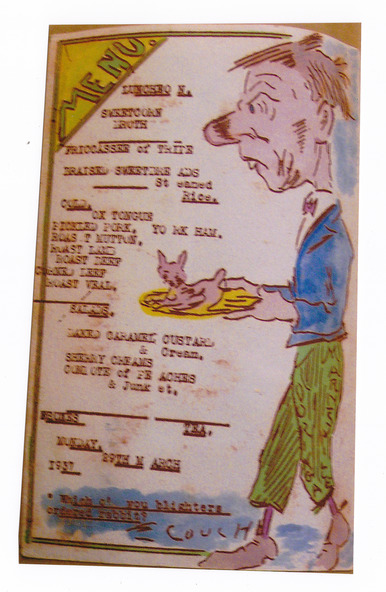 MENU.
LUNCHEO N.
SWEETCORN
BROTH
FRICCASSEE of TRIPE
BRAISED SWEETBRE ADS
St eamed
Rice.
COLD.
OX TONGUE
PICKLED PORK, YO RK HAM.
ROAS T MUTTON,
ROAST LAMB
ROAST BEEF
CORNED BEEF
ROAST VEAL.
SALADS.
BAKED CARAMEL CUSTARD
& Cream.
SHERRY CREAMS
COMPOTE of PE ACHES
& Junk et.
TEA.
MONDAY,
29TH M ARCH
1937
" Which of you blighters
ordered rabbit
COUCH